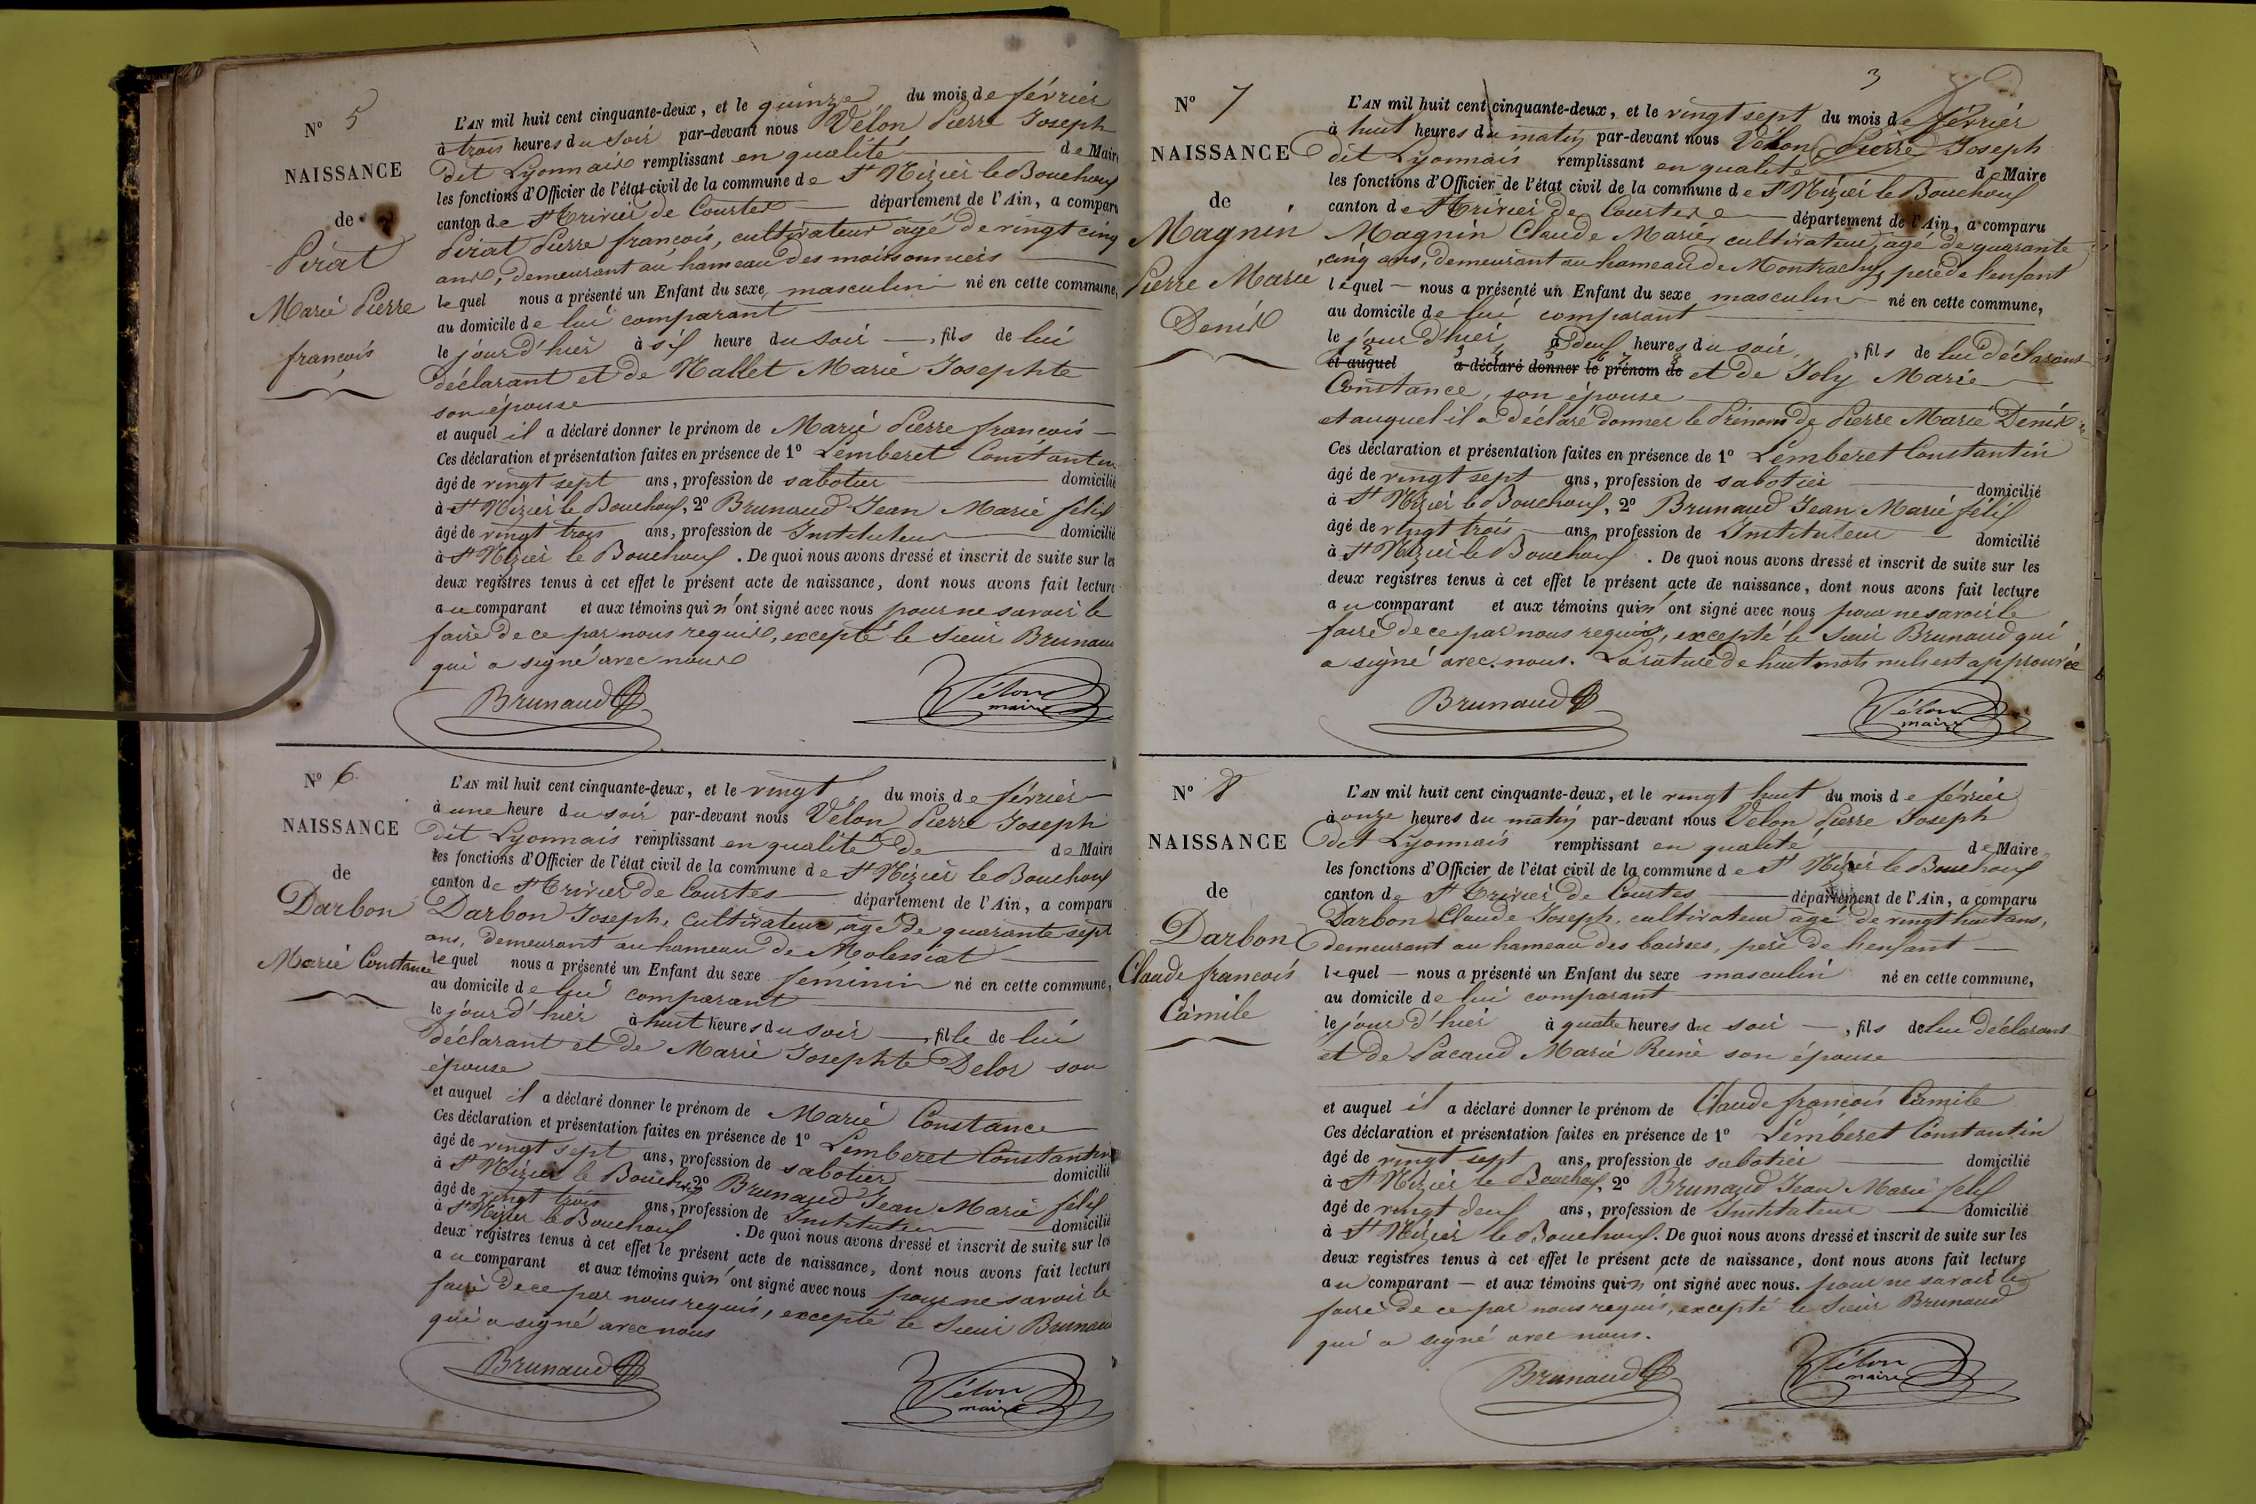 N° 5
NAISSANCE
de
Pirat
Marie Pierre
françois
L'AN mil huit cent cinquante-deux, et le quinze du mois de février
à trois heures du soir par-devant nous Vélon Pierre Joseph
dit Lyonnais remplissant en qualité de Maire
les fonctions d'Officier de l'état civil de la commune de St Nizier le Bouchoux
canton de St Trivier de Courtes département de l'Ain, a comparu
Pirat Pierre françois, cultivateur agé de vingt cinq
ans, demeurant au hameau des moissonniers
lequel nous a présenté un Enfant du sexe masculin né en cette commune,
au domicile de lui comparant
le jour d'hier à six heure du soir, fils de lui
déclarant et de Mallet Marie Josephte
son épouse
et auquel il a déclaré donner le prénom de Marie Pierre françois
Ces déclaration et présentation faites en présence de 1° Lemberet Constantin
âgé de vingt sept ans, profession de sabotier domicilié
à St Nizier le Bouchoux, 2° Brunaud Jean Marie félix
âgé de vingt trois ans, profession de Instituteur domicilié
à St Nizier le Bouchoux. De quoi nous avons dressé et inscrit de suite sur les
deux registres tenus à cet effet le présent acte de naissance, dont nous avons fait lecture
au comparant et aux témoins qui n'ont signé avec nous pour ne savoir le
faire de ce par nous requis, excepté le Sieur Brunaud
qui a signé avec nous
Brunaud
Vélon
maire
N° 6
NAISSANCE
de
Darbon
Marie Constance
L'AN mil huit cent cinquante-deux, et le vingt du mois de février
à une heure du soir par-devant nous Vélon Pierre Joseph
dit Lyonnais remplissant en qualité de de Maire
les fonctions d'Officier de l'état civil de la commune de St Nizier le Bouchoux
canton de St Trivier de Courtes département de l'Ain, a comparu
Darbon Joseph, Cultivateur, agé de quarante sept
ans, demeurant au hameau de Molessiat
lequel nous a présenté un Enfant du sexe féminin né en cette commune,
au domicile de lui comparant
le jour d'hier à huit heures du soir, fille de lui
déclarant et de Marie Josephte Delor son
épouse
et auquel il a déclaré donner le prénom de Marie Constance
Ces déclaration et présentation faites en présence de 1° Lemberet Constantin
âgé de vingt sept ans, profession de sabotier domicilié
à St Nizier le Bouchoux, 2° Brunaud Jean Marie félix
âgé de vingt trois ans, profession de Instituteur domicilié
à St Nizier le Bouchoux. De quoi nous avons dressé et inscrit de suite sur les
deux registres tenus à cet effet le présent acte de naissance, dont nous avons fait lecture
au comparant et aux témoins qui n'ont signé avec nous pour ne savoir le
faire de ce par nous requis, excepté le Sieur Brunaud
qui a signé avec nous
Brunaud
Vélon
maire
3
N° 7
NAISSANCE
de
Magnin
Pierre Marie
Denis
L'AN mil huit cent cinquante-deux, et le vingt sept du mois de février
à huit heures du matin par-devant nous Vélon Pierre Joseph
dit Lyonnais remplissant en qualité de Maire
les fonctions d'Officier de l'état civil de la commune de St Nizier le Bouchoux
canton de St Trivier de Courtes département de l'Ain, a comparu
Magnin Claude Marie, cultivateur, agé de quarante
cinq ans, demeurant au hameau de Montrachy, père de l'enfant
lequel nous a présenté un Enfant du sexe masculin né en cette commune,
au domicile de lui comparant
le jour d'hier, à deux heures du soir, fils de lui déclarant
et auquel a déclaré donner le prénom de et de Joly Marie
Constance, son épouse
et auquel il a déclaré donner le Prénom de Pierre Marie Denis
Ces déclaration et présentation faites en présence de 1° Lemberet Constantin
âgé de vingt sept ans, profession de sabotier domicilié
à St Nizier le Bouchoux, 2° Brunaud Jean Marie félix
âgé de vingt trois ans, profession de Instituteur domicilié
à St Nizier le Bouchoux. De quoi nous avons dressé et inscrit de suite sur les
deux registres tenus à cet effet le présent acte de naissance, dont nous avons fait lecture
au comparant et aux témoins qui n'ont signé avec nous pour ne savoir le
faire de ce par nous requis, excepté le Sieur Brunaud qui
a signé avec nous. La rature de huit mots nuls est approuvée
Brunaud
Vélon
maire
N° 8
NAISSANCE
de
Darbon
Claude françois
Camile
L'AN mil huit cent cinquante-deux, et le vingt huit du mois de février
à onze heures du matin par-devant nous Velon Pierre Joseph
dit Lyonnais remplissant en qualité de Maire
les fonctions d'Officier de l'état civil de la commune de St Nizier le Bouchoux
canton de St Trivier de Courtes département de l'Ain, a comparu
Darbon Claude Joseph, cultivateur agé de vingt huit ans,
demeurant au hameau des boisses, père de l'enfant
lequel nous a présenté un Enfant du sexe masculin né en cette commune,
au domicile de lui comparant
le jour d'hier à quatre heures du soir, fils de lui déclarant
et de Pacaud Marie Reine son épouse
et auquel il a déclaré donner le prénom de Claude françois Camile
Ces déclaration et présentation faites en présence de 1° Lemberet Constantin
âgé de vingt sept ans, profession de sabotier domicilié
à St Nizier le Bouchoux, 2° Brunaud Jean Marie félix
âgé de vingt deux ans, profession de Instituteur domicilié
à St Nizier le Bouchoux. De quoi nous avons dressé et inscrit de suite sur les
deux registres tenus à cet effet le présent acte de naissance, dont nous avons fait lecture
au comparant et aux témoins qui n'ont signé avec nous. pour ne savoir le
faire de ce par nous requis, excepté le Sieur Brunaud
qui a signé avec nous.
Brunaud
Vélon
maire